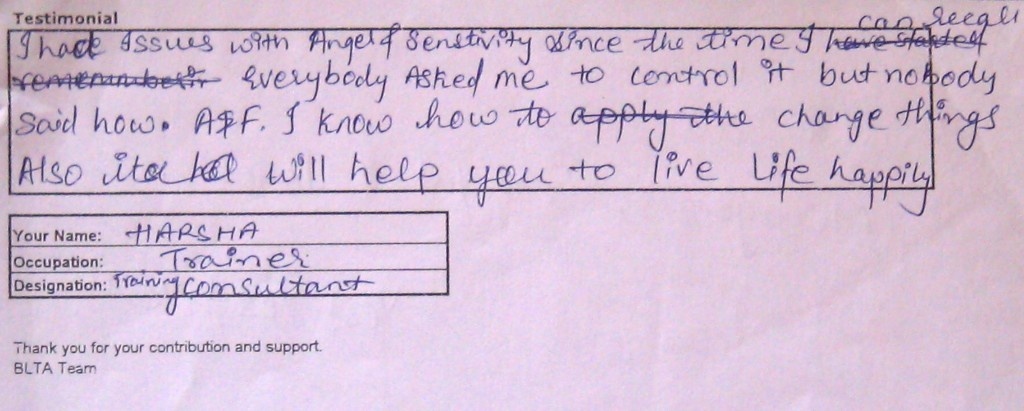 Testimonial
can Reegli
I had Issues with Angel & Senstivity Since the time I have started
remember. Everybody Asked me to control it but nobody
Said how. A&F. I know how to apply the change things
Also will help you to live Life happily
Your Name: HARSHA
Occupation: Trainer
Designation: Training Consultant
Thank you for your contribution and support.
BLTA Team